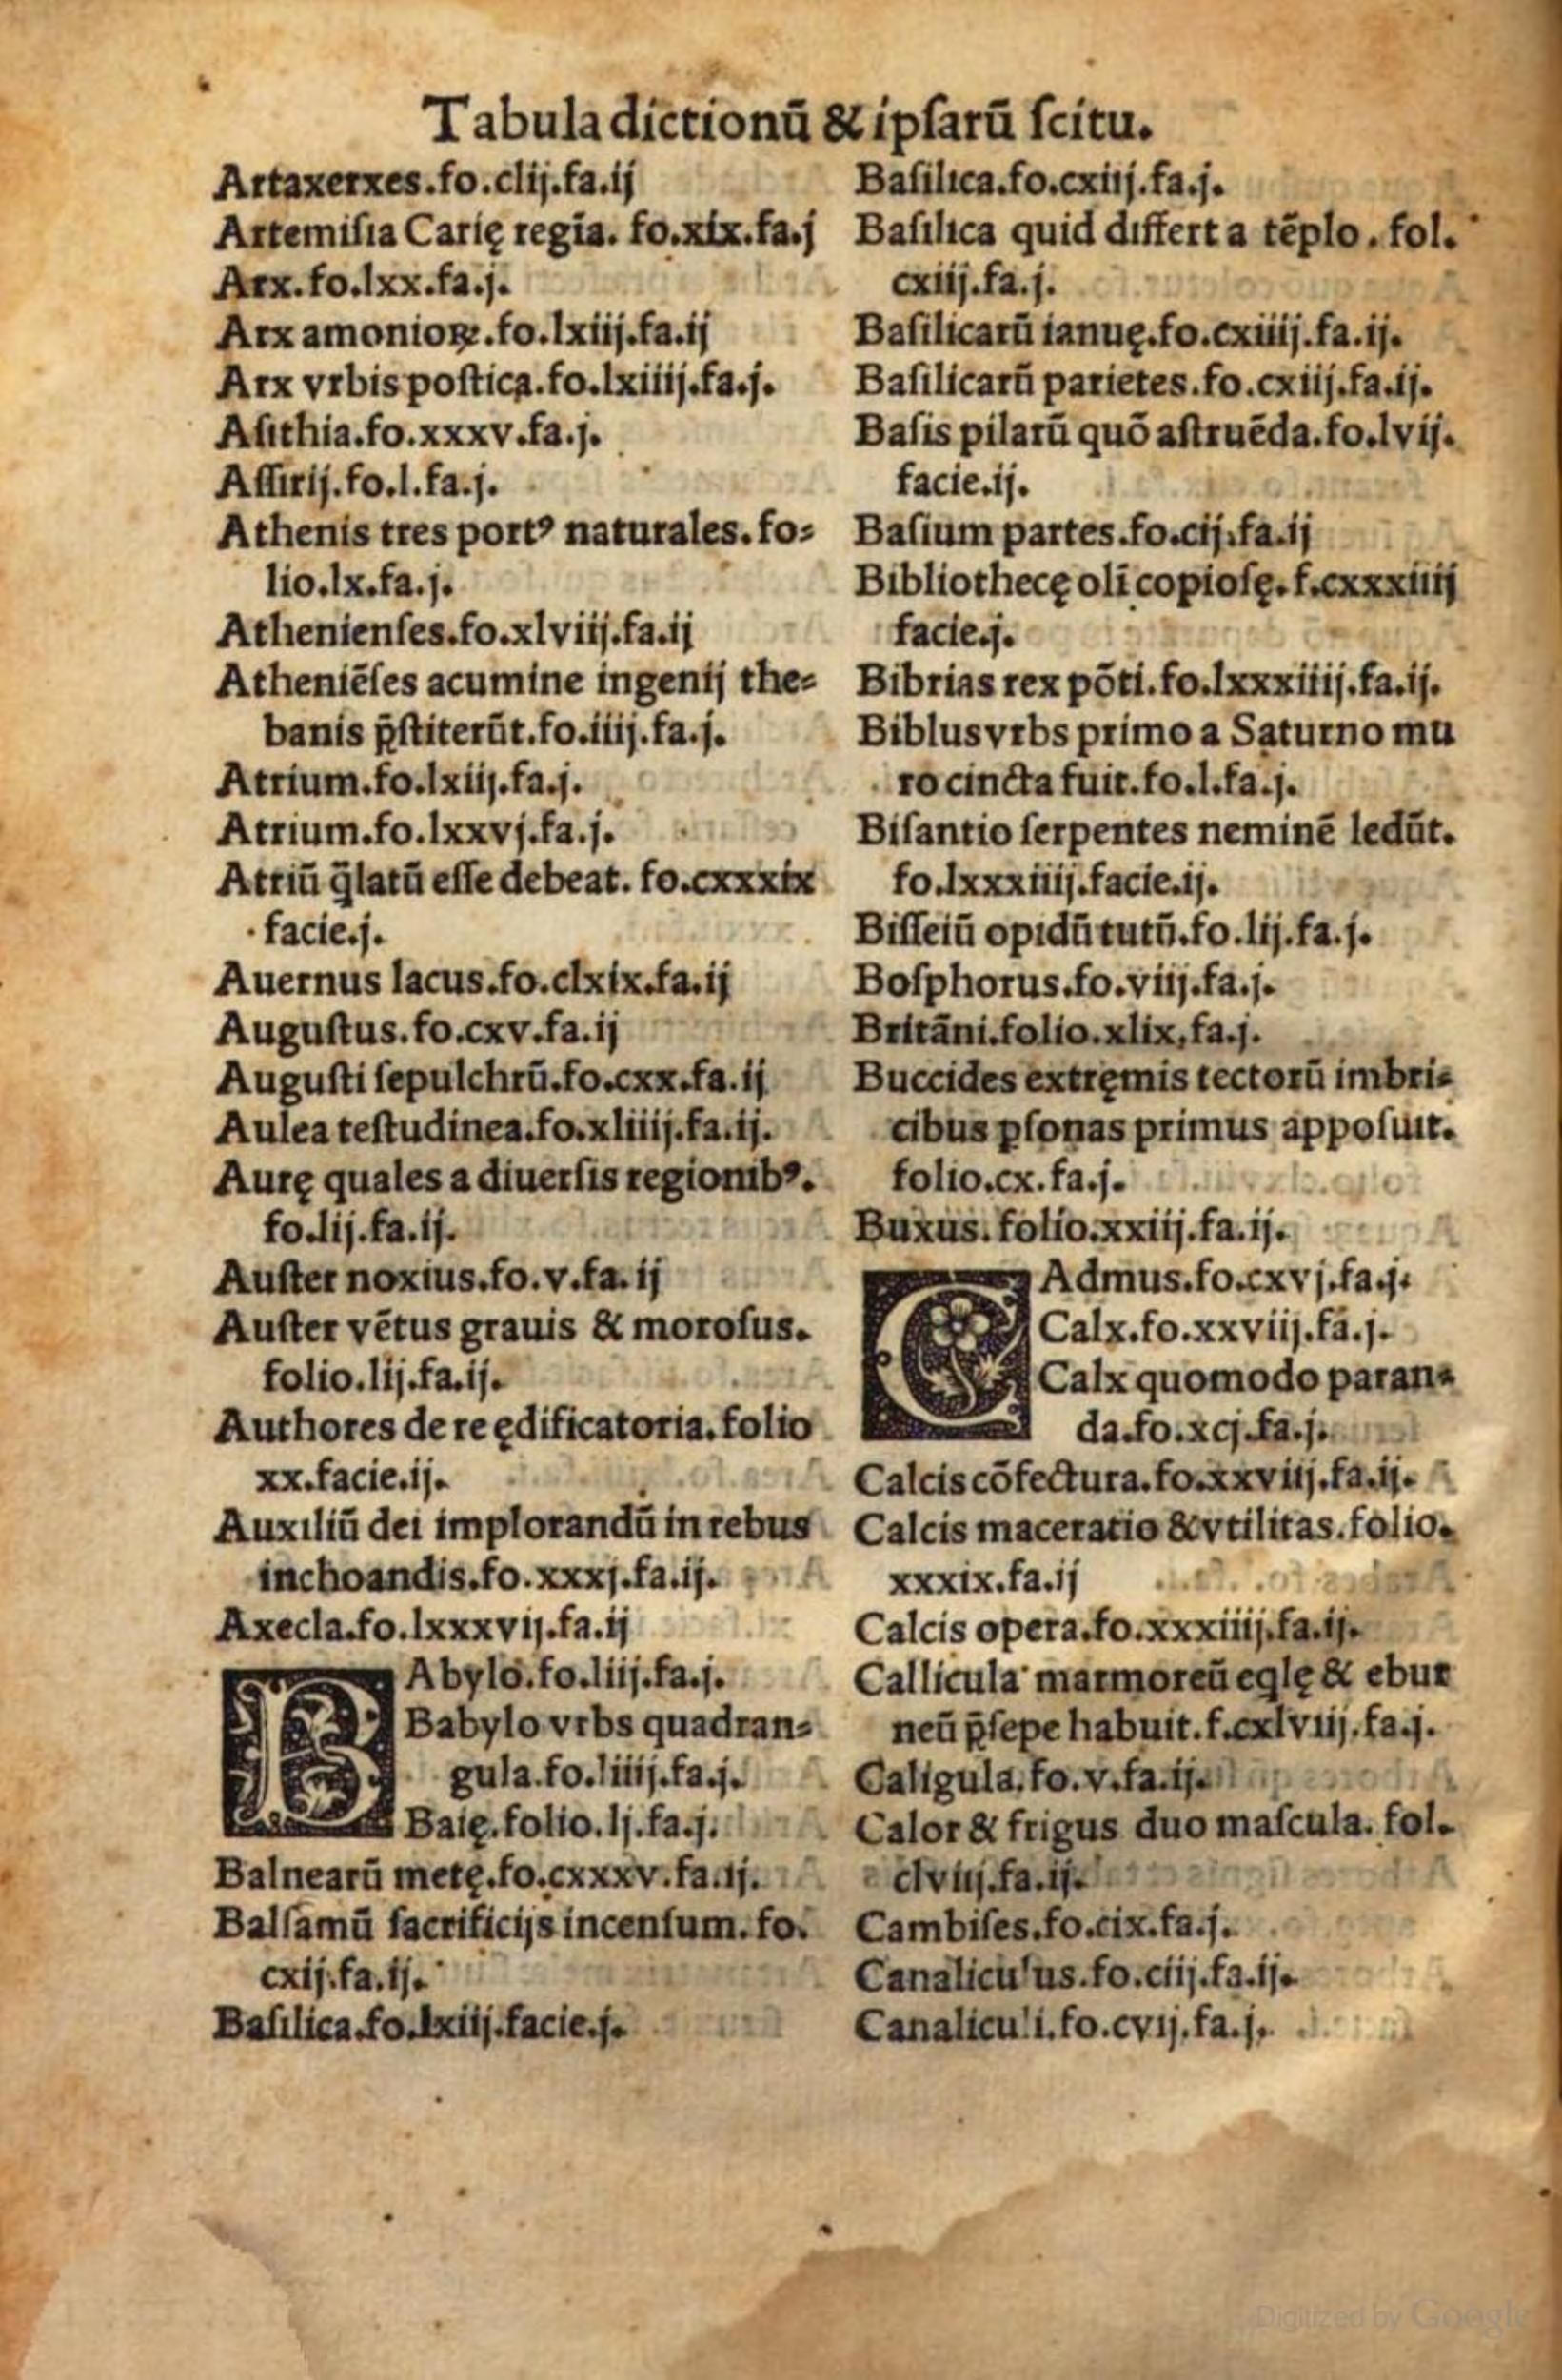 Tabula dictionū & ipſarū ſcitu.
Artaxerxes.fo.clij.fa.ij
Artemiſia Carię regīa. fo.xix.fa.j
Arx.fo.lxx.fa.j.
Arx amonioꝝ.fo.lxiij.fa.ij
Arx vrbis poſtica.fo.lxiiij.fa.j.
Aſithia.fo.xxxv.fa.j.
Aſſirij.fo.l.fa.j.
Athenis tres portꝰ naturales.fo⸗
lio.lx.fa.j.
Athenienſes.fo.xlviij.fa.ij
Atheniēſes acumine ingenij the⸗
banis p̄ſtiterūt.fo.iiij.fa.j.
Atrium.fo.lxiij.fa.j.
Atrium.fo.lxxvj.fa.j.
Atriū q̄latū eſſe debeat. fo.cxxxix
facie.j.
Auernus lacus.fo.clxix.fa.ij
Auguſtus.fo.cxv.fa.ij
Auguſti ſepulchrū.fo.cxx.fa.ij
Aulea teſtudinea.fo.xliiij.fa.ij.
Aurę quales a diuerſis regionibꝰ.
fo.lij.fa.ij.
Auſter noxius.fo.v.fa.ij
Auſter vētus grauis & moroſus.
folio.lij.fa.ij.
Authores de re ędificatoria.folio
xx.facie.ij.
Auxiliū dei implorandū in rebus
inchoandis.fo.xxxj.fa.ij.
Axecla.fo.lxxxvij.fa.ij
BAbylo.fo.liij.fa.j.
Babylo vrbs quadran⸗
gula.fo.liiij.fa.j.
Baię.folio.lj.fa.j.
Balnearū metę.fo.cxxxv.fa.ij.
Balſamū ſacrificijs incenſum.fo.
cxij.fa.ij.
Baſilica.fo.lxiij.facie.j.
Baſilica.fo.cxiij.fa.j.
Baſilica quid differt a tēplo. fol.
cxiij.fa.j.
Baſilicarū ianuę.fo.cxiiij.fa.ij.
Baſilicarū parietes.fo.cxiij.fa.ij.
Baſis pilarū quō aſtruēda.fo.lvij.
facie.ij.
Baſium partes.fo.cij.fa.ij
Bibliothecę olī copioſę.f.cxxxiiij
facie.j.
Bibrias rex pōti.fo.lxxxiiij.fa.ij.
Biblus vrbs primo a Saturno mu
ro cincta fuit.fo.l.fa.j.
Biſantio ſerpentes neminē ledūt.
fo.lxxxiiij.facie.ij.
Biſſeiū opidū tutū.fo.lij.fa.j.
Boſphorus.fo.viij.fa.j.
Britāni.folio.xlix.fa.j.
Buccides extręmis tectorū imbri⸗
cibus ꝑſonas primus appoſuit.
folio.cx.fa.j.
Buxus.folio.xxiij.fa.ij.
CAdmus.fo.cxvj.fa.j.
Calx.fo.xxviij.fa.j.
Calx quomodo paran⸗
da.fo.xcj.fa.j.
Calcis cōfectura.fo.xxviij.fa.ij.
Calcis maceratio & vtilitas.folio.
xxxix.fa.ij
Calcis opera.fo.xxxiiij.fa.ij.
Callicula marmoreū eqlę & ebur
neū p̄ſepe habuit.f.cxlviij.fa.j.
Caligula.fo.v.fa.ij.
Calor & frigus duo maſcula. fol.
clviij.fa.ij.
Cambiſes.fo.cix.fa.j.
Canaliculus.fo.ciij.fa.ij.
Canaliculi.fo.cvij.fa.j.
Digitized by Google